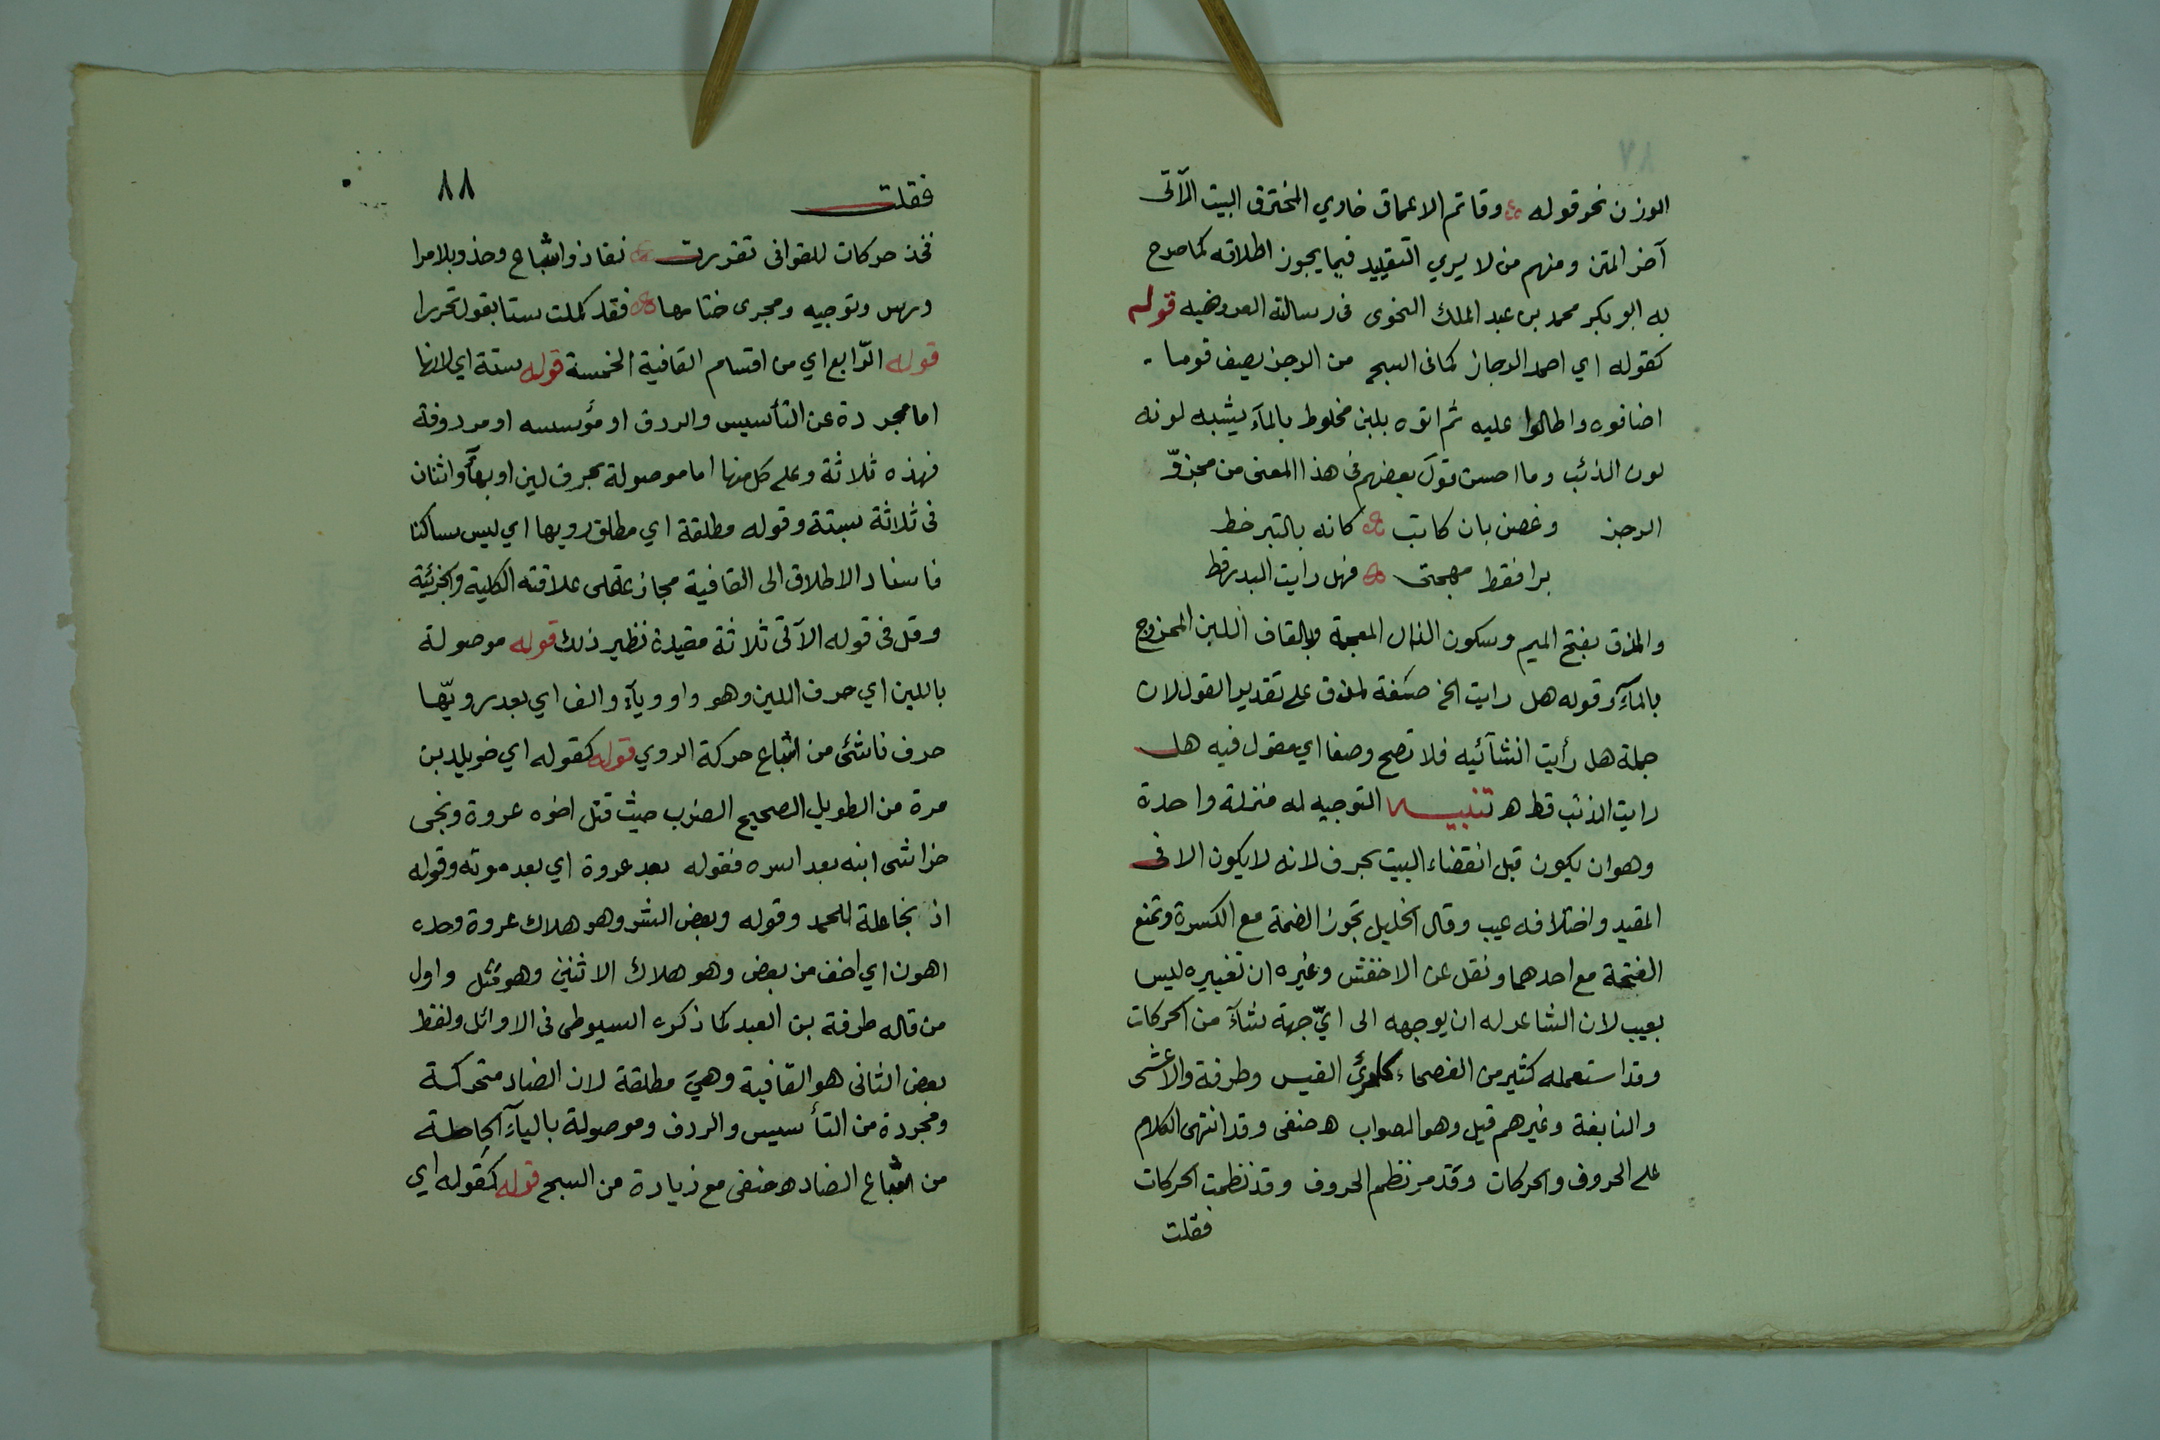 الوزن نحو قوله وقاتم الاعماق خاوي المخترق البيت الآتى
آخر المتن ومنهم من لا يري التقييد فيما يجوز اطلاقه كما صرح
به ابو بكر محمد بن عبد الملك النحوى فى رسالته العروضيه قوله
كقوله اي احمد الرجاز كما فى السجم من الرجز يصف قوما
اضافوه واطالوا عليه ثم اتوه بلبن مخلوط بالمآء يشبه لونه
لون الذئب وما احسن قول بعضهم فى هذا المعنى من مجزوّ
الرجز وغصن بان كاتب كانه بالتبر خط
برا فقط مهجتى فهل رايت البدر قط
والمذق بفتح الميم وسكون الذال المعجمة وبالقاف اللبن الممزوج
بالمآء وقوله هل رايت الخ صفة لمذق على تقدير القول لان
جملة هل رأيت انشآئيه فلا تصح وصفا اي مقول فيه هل
رايت الذئب قط هـ تنبيه التوجيه له منزلة واحدة
وهو ان يكون قبل انقضاء البيت بحرف لانه لا يكون الا فى
المقيد واختلافه عيب وقال الخليل تجوز الضمة مع الكسرة وتمنع
الفتحة مع احدهما ونقل عن الاخفش وغيره ان تغييره ليس
بعيب لان الشاعر له ان يوجهه الى ايّ جهة شآء من الحركات
وقد استعمله كثير من الفصحاء كامرئ القيس وطرفة والاعشى
والنابغة وغيرهم قيل وهو الصواب هـ حنفى وقد انتهى الكلام
على الحروف والحركات وقد مر نظم الحروف وقد نظمت الحركات
فقلت
٨٨
فقلت
فخذ حركات للقوافى تقررت نفاذ واشباع وحذو بلا مرا
ورس وتوجيه ومجرى ختامها فقد كملت ستا بقول تحررا
قوله الرّابع اي من اقسام القافية الخمسة قوله ستة اي لانها
اما مجردة عن التأسيس والردف او مؤسسه او مردوفة
فهذه ثلاثة وعلى كل منها اما موصولة بحرف لين او بهآء واثنان
فى ثلاثة بستة وقوله مطلقة اي مطلق رويها اي ليس ساكنا
فاسناد الاطلاق الى القافية مجاز عقلى علاقته الكلية والجزئية
وقل فى قوله الآتى ثلاثة مقيدة نظير ذلك قوله موصولة
باللين اي حرف اللين وهو واو ويآء والف اي بعد رويّها
حرف ناشئ من اشباع حركة الروي قوله كقوله اي خويلد بن
مرة من الطويل الصحيح الضرب حيث قتل اخوه عروة ونجى
خراشى ابنه بعد اسره فقوله بعد عروة اي بعد موته وقوله
اذ نجا علة للحمد وقوله وبعض الشر وهو هلاك عروة وحده
اهون اي اخف من بعض وهو هلاك الاثنين وهو مثل واول
من قاله طرفة بن العبد كما ذكره السيوطى فى الاوائل ولفظ
بعض الثانى هو القافية وهي مطلقة لان الضاد متحركة
ومجردة من التأسيس والردف وموصولة باليآء الحاصلة
من اشباع الضاد هـ حنفى مع زيادة من السجم قوله كقوله اي